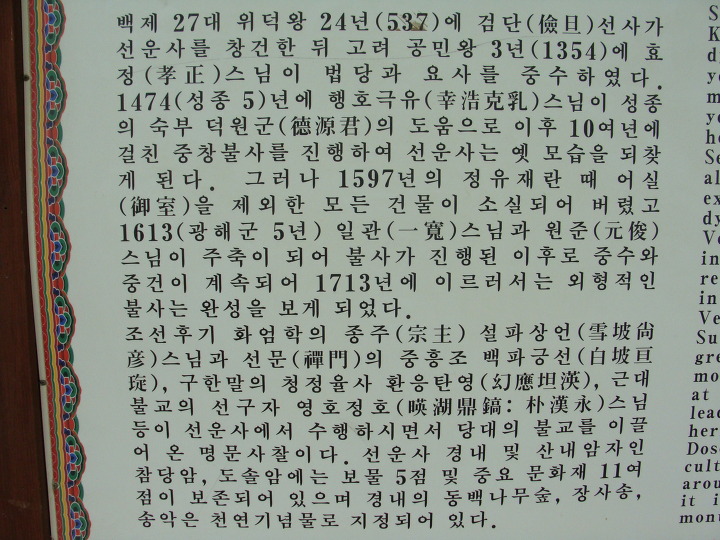 백제 27대 위덕왕 24년(537)에 검단(儉旦)선사가
선운사를 창건한 뒤 고려 공민왕 3년(1354)에 효
정(孝正)스님이 법당과 요사를 중수하였다.
1474(성종 5)년에 행호극유(幸浩克乳)스님이 성종
의 숙부 덕원군(德源君)의 도움으로 이후 10여년에
걸친 중창불사를 진행하여 선운사는 옛 모습을 되찾
게 된다. 그러나 1597년의 정유재란 때 어실
(御室)을 제외한 모든 건물이 소실되어 버렸고
1613(광해군 5년) 일관(一寬)스님과 원준(元俊)
스님이 주축이 되어 불사가 진행된 이후로 중수와
중건이 계속되어 1713년에 이르러서는 외형적인
불사는 완성을 보게 되었다.
조선후기 화엄학의 종주(宗主) 설파상언(雪坡尙
彦)스님과 선문(禪門)의 중흥조 백파긍선(白坡亘
璇), 구한말의 청정율사 환응탄영(幻應坦泳), 근대
불교의 선구자 영호정호(暎湖鼎鎬: 朴漢永)스님
등이 선운사에서 수행하시면서 당대의 불교를 이끌
어 온 명문사찰이다. 선운사 경내 및 산내암자인
참당암, 도솔암에는 보물 5점 및 중요 문화재 11여
점이 보존되어 있으며 경내의 동백나무숲, 장사송,
송악은 천연기념물로 지정되어 있다.